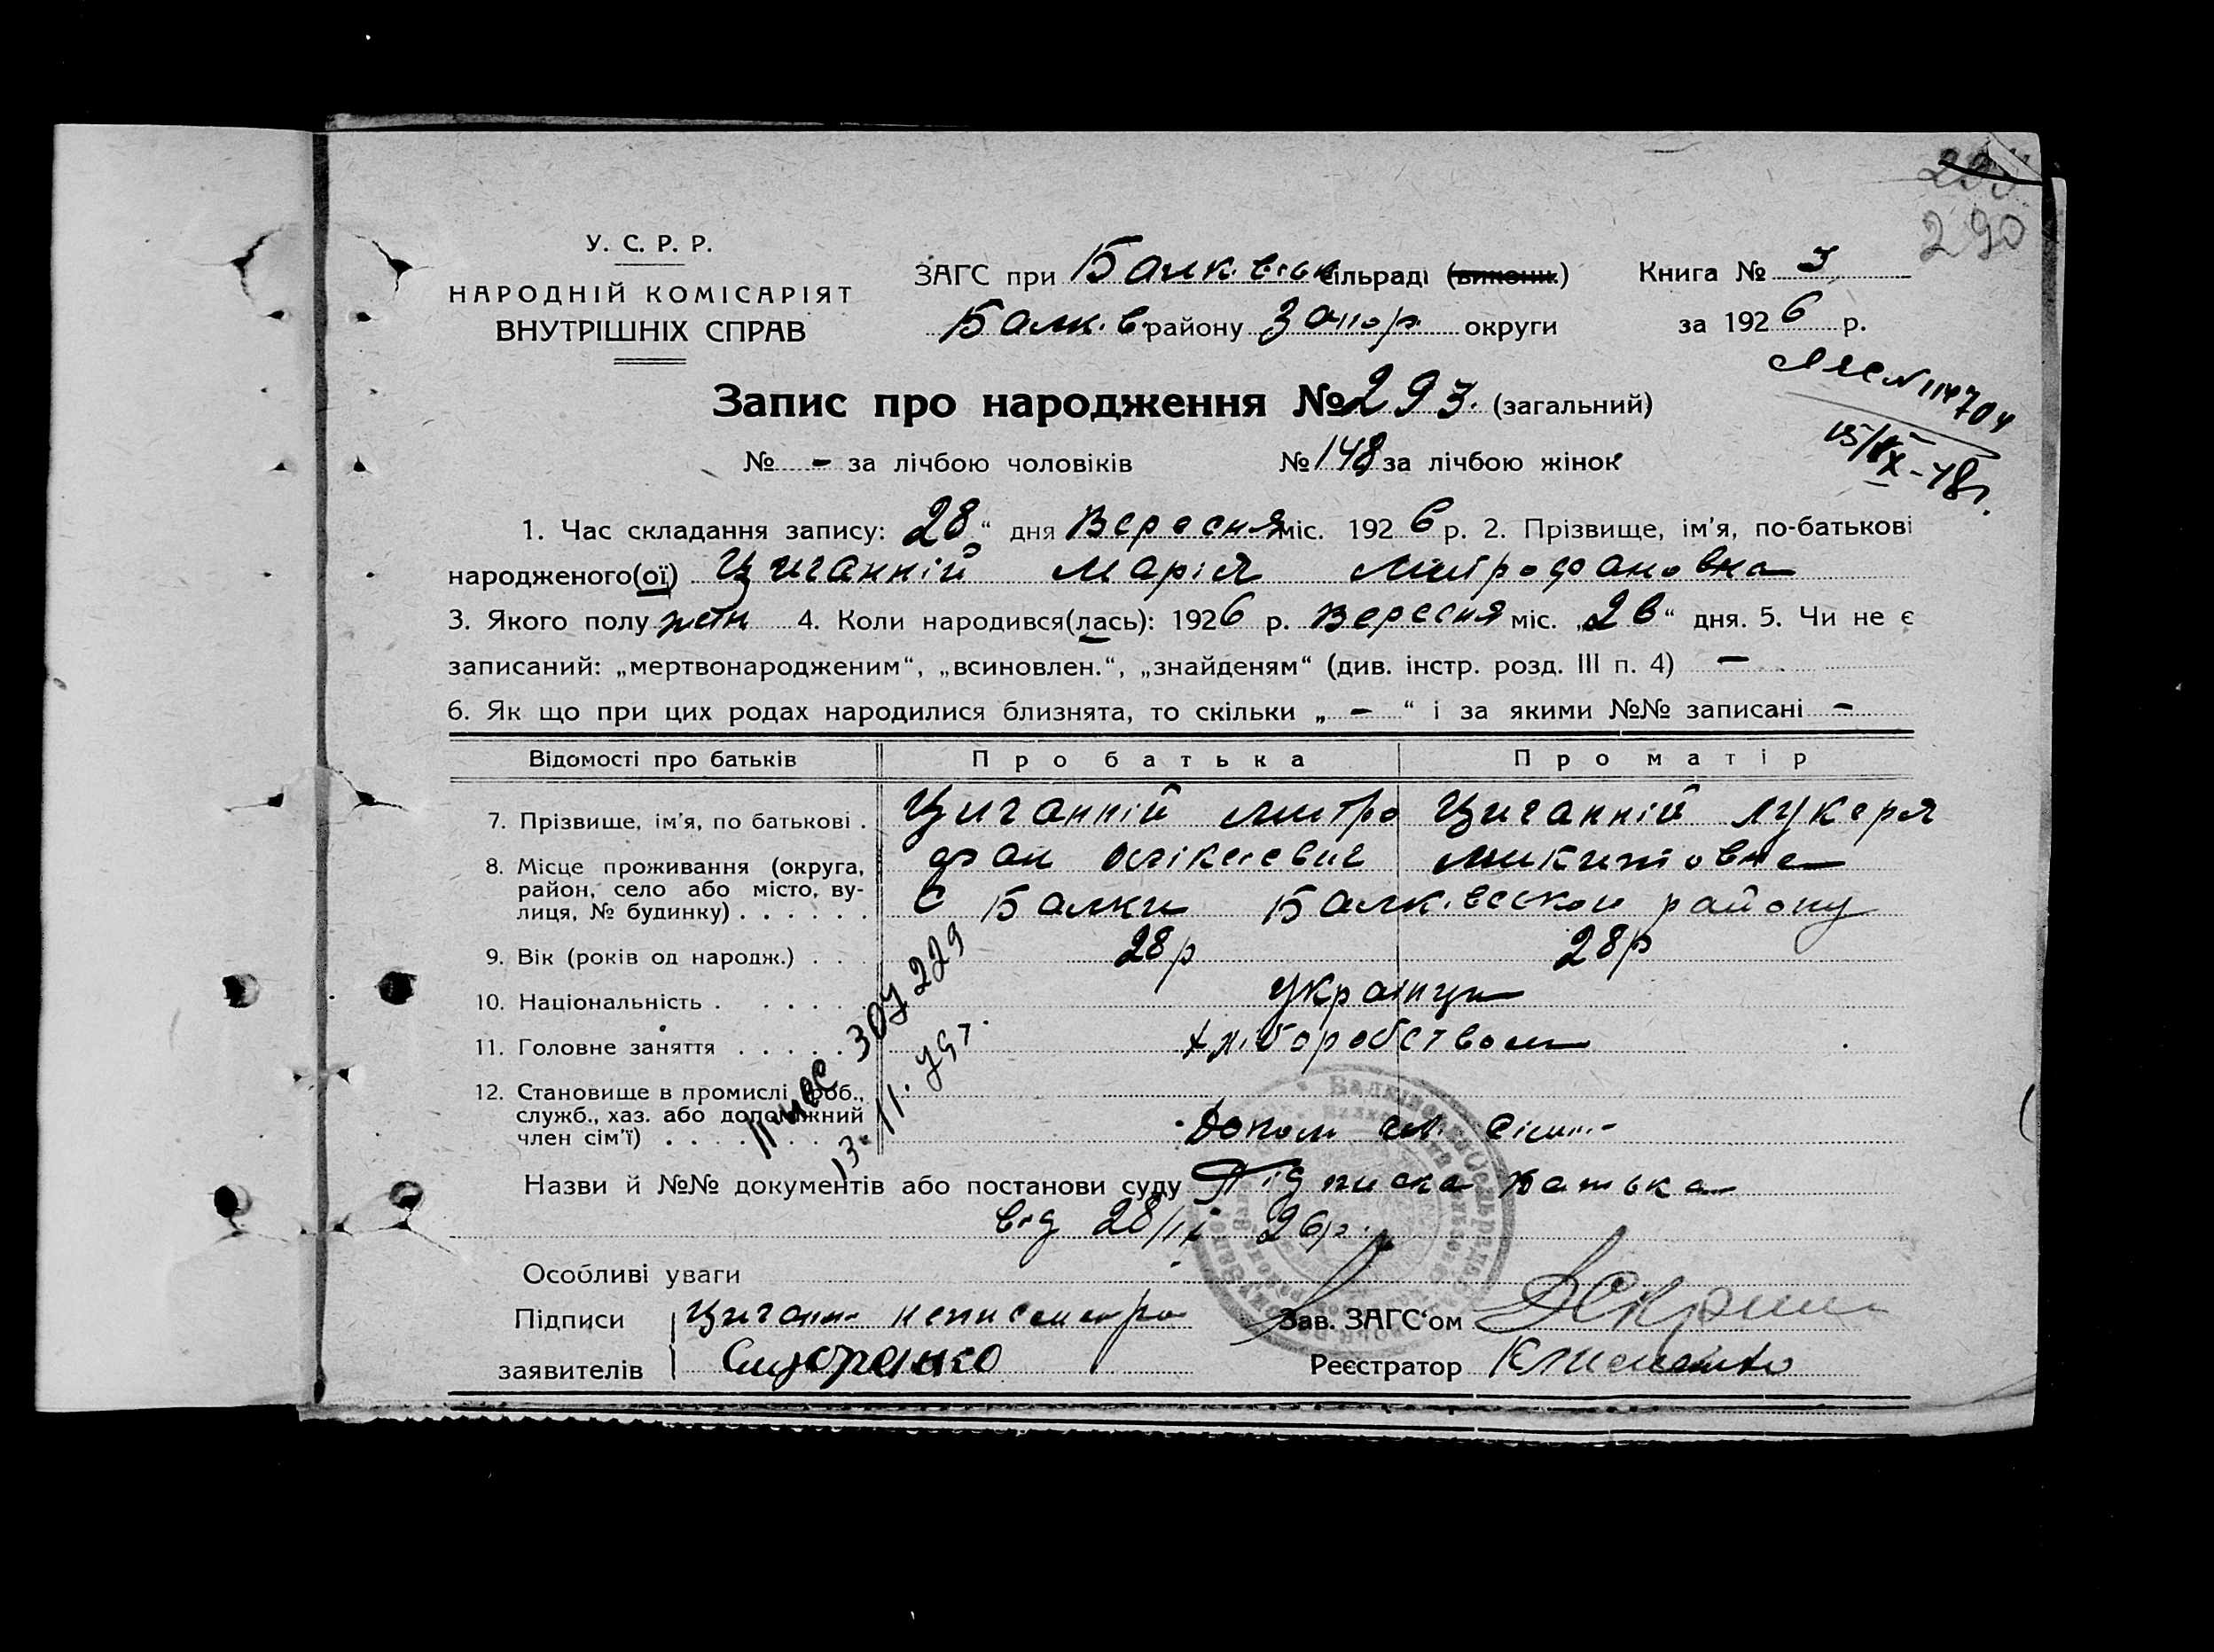 290
У. С. Р. Р.
НАРОДНІЙ КОМІСАРІЯТ
ВНУТРІШНІХ СПРАВ
ЗАГС при Балк. вськ сільраді (викони.)
Балк. в. району Запор. округи
Книга № 3
за 1926 р.
Запис про народження № 293. (загальний)
№ - за лічбою чоловіків № 148 за лічбою жінок
1. Час складання запису: 28 “ дня Вересня міс. 1926 р. 2. Прізвище, ім'я, по-батькові
народженого(ої) Циганній Марія Митрофановна
3. Якого полу жін 4. Коли народився(лась): 1926 р. Вересня міс. „26“ дня. 5. Чи не є
записаний: „мертвонародженим“, „всиновлен.“, „знайденям“ (див. інстр. розд. III п. 4) —
6. Як що при цих родах народилися близнята, то скільки „ - “ і за якими №№ записані -
Відомості про батьків Про батька Про матір
7. Прізвище, ім'я, по батькові . Циганній Митро Циганній Лукеря
фан Микитовна
8. Місце проживання (округа,
район, село або місто, ву-
лиця, № будинку) . . . . . . С Балки Балк. вської району
9. Вік (років од народж.) . . . 28 р 28 р
10. Національність . . . . . українци
11. Головне заняття . . . . . хліборобством
12. Становище в промислі (роб.,
служб., хаз. або допоміжний
член сім'ї) . . . . . Допом чл. сім
Назви й №№ документів або постанови суду Підписка Батька
від 28/IX 26р.
Особливі уваги
Підписи Циганн неписьмен
заявителів
Зав. ЗАГС'ом
Реєстратор Клименко